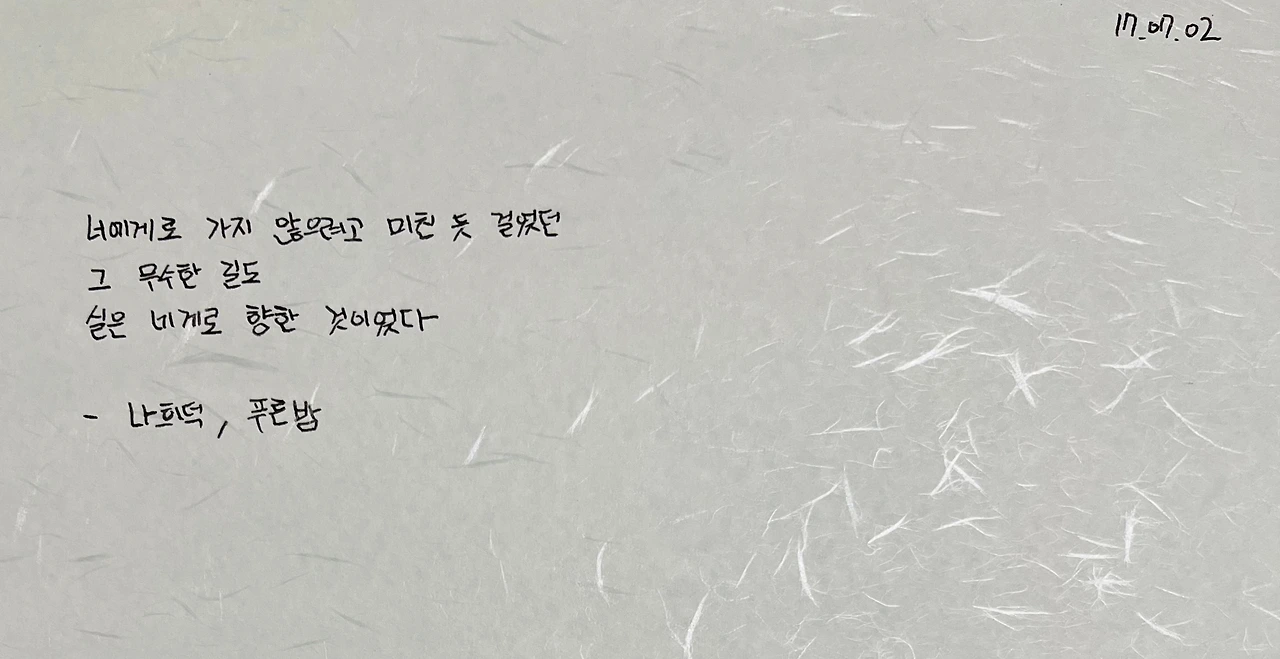 17.07.02
너에게로 가지 않으려고 미친 듯 걸었던
그 무수한 길도
실은 네게로 향한 것이었다
- 나희덕, 푸른밤